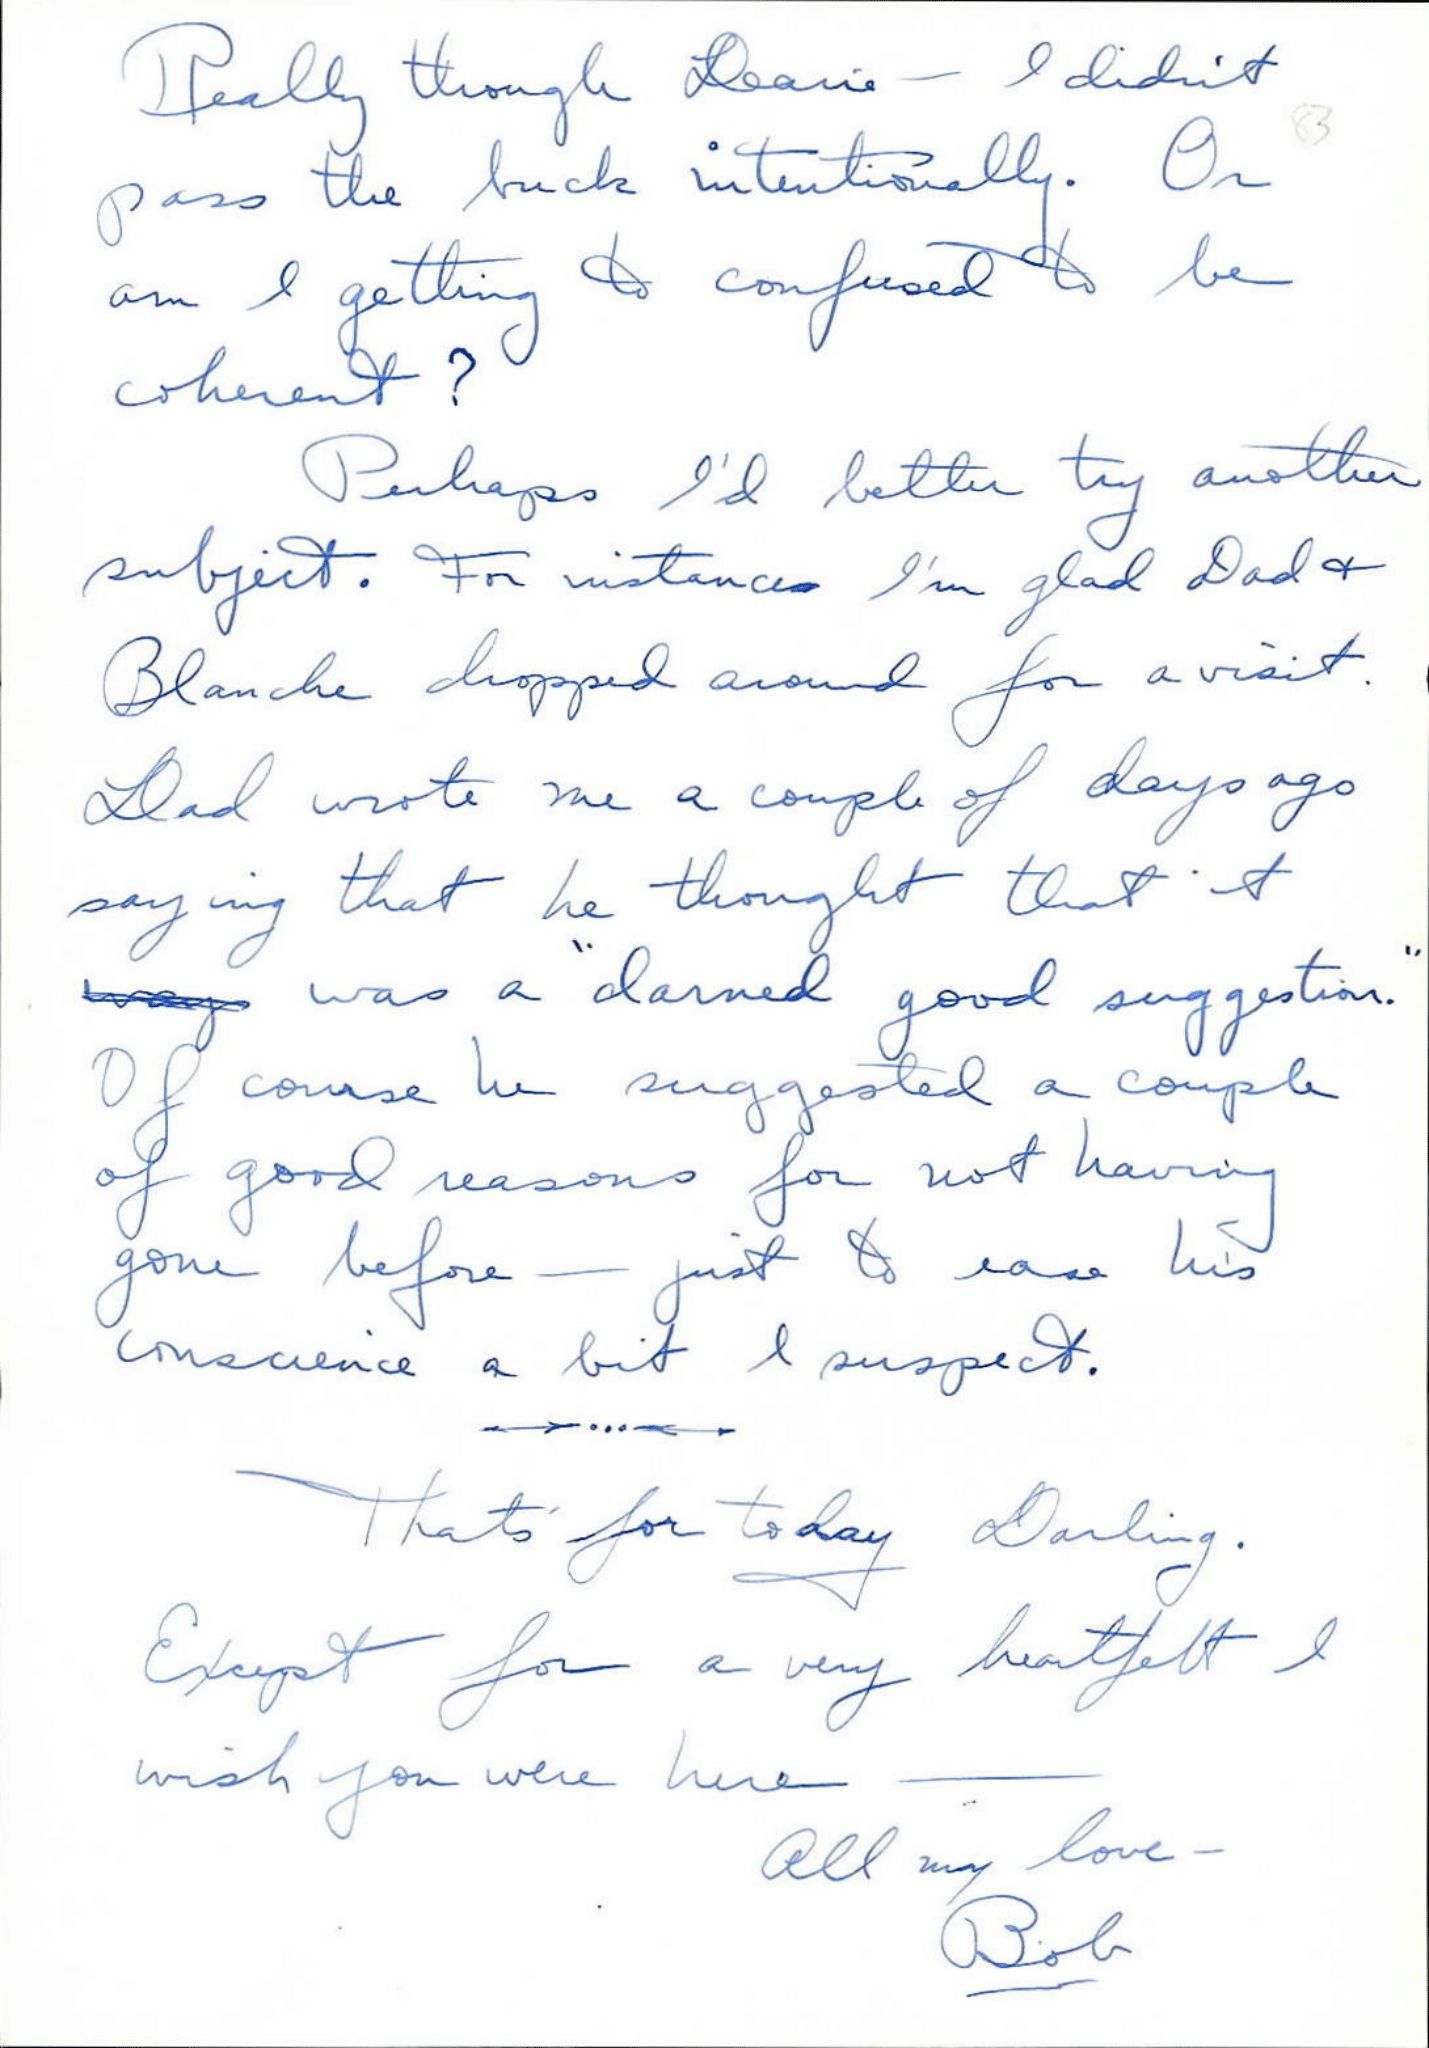 Really though Dearie — I didn't
83
pass the buck intentionally. Or
am I getting to confused to be
coherent?
Perhaps I'd better try another
subject. For instance I'm glad Dad &
Blanche dropped around for a visit.
Dad wrote me a couple of days ago
saying that he thought that it
ways was a "darned good suggestion."
Of course he suggested a couple
of good reasons for not having
gone before — just to ease his
conscience a bit I suspect.
That's for today Darling.
Except for a very heartfelt I
wish you were here —
All my love —
Bob